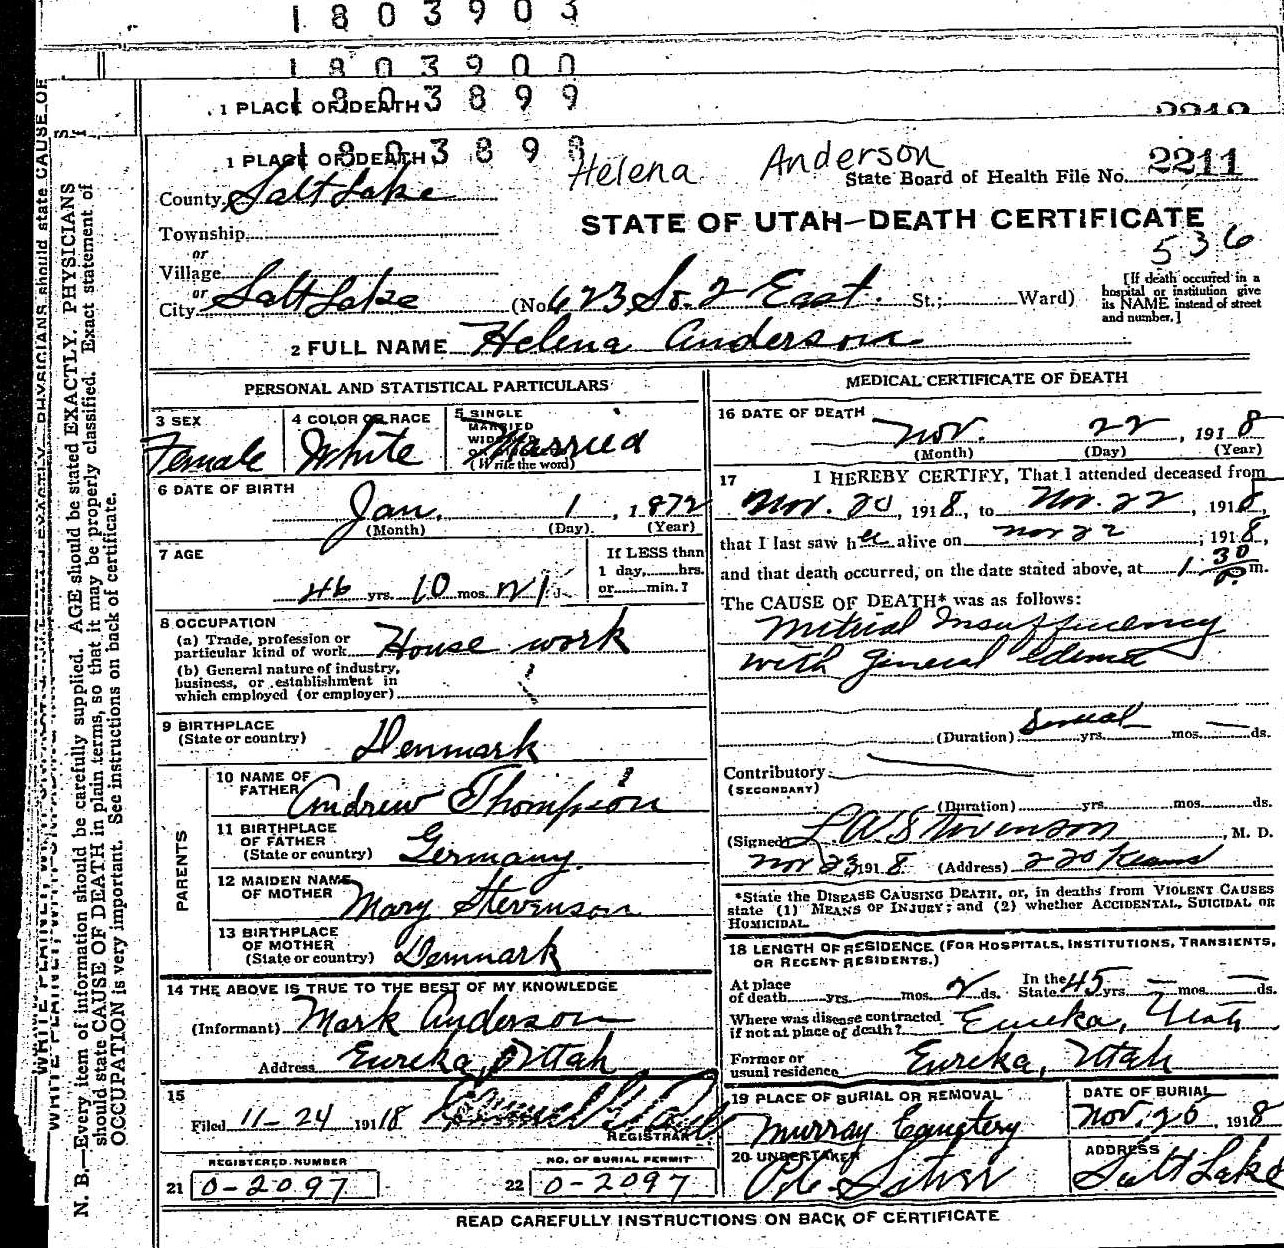 1803903
1803900
1803899
1 PLACE OF DEATH
2212
1803898
1 PLACE OF DEATH
Helena Anderson
State Board of Health File No. 2211
County Salt Lake
STATE OF UTAH—DEATH CERTIFICATE
536
Township
or
Village
or
City Salt Lake (No. 623 So. 2 East. St.; Ward)
[If death occurred in a
hospital or institution give
its NAME instead of street
and number.]
2 FULL NAME Helena Anderson
PERSONAL AND STATISTICAL PARTICULARS
3 SEX
Female
4 COLOR OR RACE
White
5 SINGLE
MARRIED
Married
(Write the word)
6 DATE OF BIRTH
Jan. 1, 1872
(Month) (Day) (Year)
7 AGE
46 yrs. 10 mos. 21
If LESS than
1 day,......hrs.
or......min.?
8 OCCUPATION
(a) Trade, profession or
particular kind of work House work
(b) General nature of industry,
business, or establishment in
which employed (or employer)
9 BIRTHPLACE
(State or country)
Denmark
PARENTS
10 NAME OF
FATHER Andrew Thompson
11 BIRTHPLACE
OF FATHER
(State or country) Germany
12 MAIDEN NAME
OF MOTHER Mary Stevenson
13 BIRTHPLACE
OF MOTHER
(State or country) Denmark
14 THE ABOVE IS TRUE TO THE BEST OF MY KNOWLEDGE
(Informant) Mark Anderson
Address Eureka, Utah
15
Filed 11-24 1918
REGISTRAR
REGISTERED NUMBER
21 0-2097
NO. OF BURIAL PERMIT
22 0-2097
MEDICAL CERTIFICATE OF DEATH
16 DATE OF DEATH
Nov. 22, 1918
(Month) (Day) (Year)
17 I HEREBY CERTIFY, That I attended deceased from
Nov. 20, 1918, to Nov. 22, 1918,
that I last saw her alive on Nov 22, 1918,
and that death occurred, on the date stated above, at 1 30 P m.
The CAUSE OF DEATH* was as follows:
Mitrial Insufficiency
with general edema
(Duration) yrs. mos. ds.
Contributory
(SECONDARY)
(Duration) yrs. mos. ds.
(Signed) L W Stevenson, M. D.
Nov 23 1918 (Address) 220 Kearns
*State the DISEASE CAUSING DEATH, or, in deaths from VIOLENT CAUSES
state (1) MEANS OF INJURY; and (2) whether ACCIDENTAL, SUICIDAL OR
HOMICIDAL.
18 LENGTH OF RESIDENCE (FOR HOSPITALS, INSTITUTIONS, TRANSIENTS,
OR RECENT RESIDENTS.)
At place
of death yrs. mos. 2 ds. In the
State 45 yrs — mos. — ds.
Where was disease contracted
if not at place of death? Eureka, Utah
Former or
usual residence Eureka, Utah
19 PLACE OF BURIAL OR REMOVAL
Murray Cemetery
DATE OF BURIAL
Nov. 26, 1918
20 UNDERTAKER
ADDRESS
Salt Lake
READ CAREFULLY INSTRUCTIONS ON BACK OF CERTIFICATE
N. B.—Every item of information should be carefully supplied. AGE should be stated EXACTLY. PHYSICIANS
should state CAUSE OF DEATH in plain terms, so that it may be properly classified. Exact statement of
OCCUPATION is very important. See instructions on back of certificate.